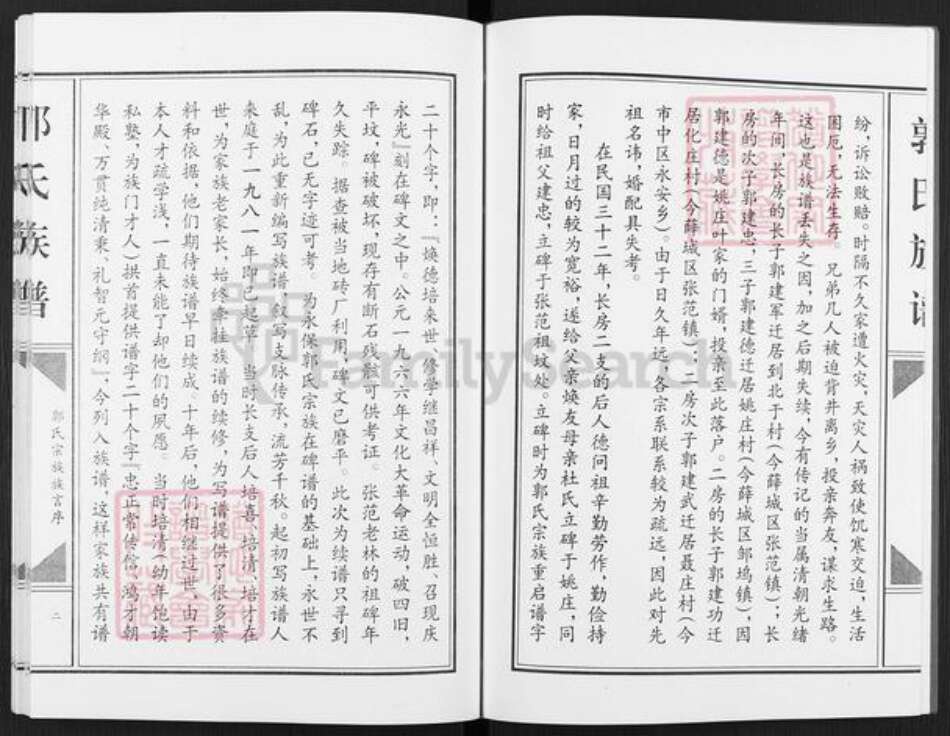 郭氏族谱
纷,诉讼败赔。时隔不久家遭火灾,天灾人祸致使饥寒交迫,生活
困厄,无法生存。 兄弟几人被迫背井离乡,投亲奔友,谋求生路。
这也是族谱丢失之因,加之后期失续,今有传记的当属清朝光绪
年间,长房的长子郭建军迁居到北于村(今薛城区张范镇);长
房的次子郭建忠,三子郭建德迁居姚庄村(今薛城区邹坞镇),因
郭建德是姚庄叶家的门婿,投亲至此落户。二房的长子郭建功迁
居化庄村(今薛城区张范镇);二房次子郭建武迁居聂庄村(今
市中区永安乡)。由于日久年远,各宗系联系较为疏远,因此对先
祖名讳,婚配具失考。
在民国三十二年,长房二支的后人德问祖辛勤劳作,勤俭持
家,日月过的较为宽裕,遂给父亲焕友母亲杜氏立碑于姚庄,同
时给祖父建忠,立碑于张范祖坟处。立碑时为郭氏宗族重启谱字
二十个字,即:『焕德培来世、修学继昌祥、文明全恒胜、召现庆
永光』刻在碑文之中。公元一九六六年文化大革命运动,破四旧,
平坟,碑被破坏,现存有断石残骸可供考证。 张范老林的祖碑年
久失踪。据查被当地砖厂利用,碑文已磨平。 此次为续谱只寻到
碑石,已无字迹可考。 为永保郭氏宗族在碑谱的基础上,永世不
乱,为此重新编写族谱,叙写支脉传承,流芳千秋。起初写族谱人
来庭于一九八一年即已起草。当时长支后人培喜、培清、培才在
世,为家族老家长,始终牵挂族谱的续修,为写谱提供了很多资
料和依据,他们期待族谱早日续成。十年后,他们相继过世,由于
本人才疏学浅,一直未能了却他们的夙愿。 当时培清(幼年饱读
私塾,为族门才人)拱首提供谱字二十个字『忠正常传信、鸿才朝
华殿、万贯纯清秉、礼智元守纲』,今列入族谱,这样家族共有谱
郭氏族谱
郭氏宗族族言序
二
FamilySearch